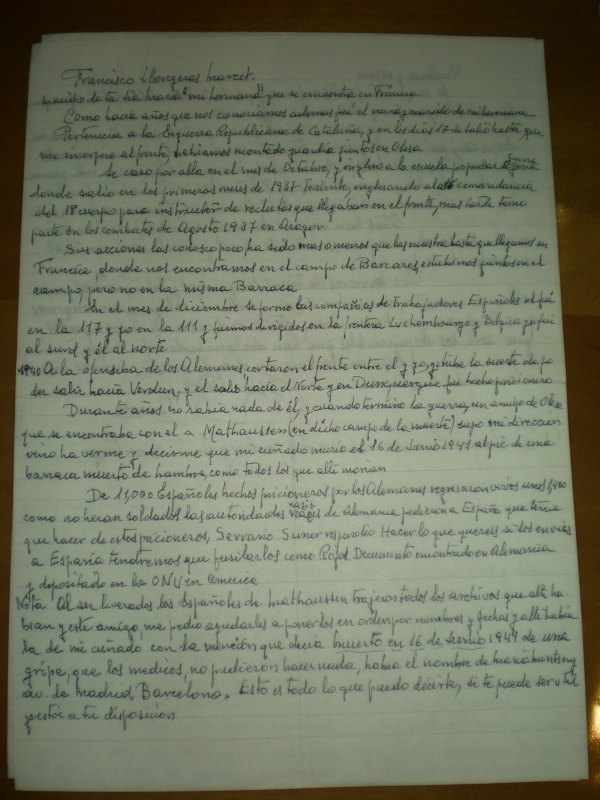 Francisco Llongueras Marcet.
marido de ta tia Maria "mi hermana" que se encuentra en Francia
Como hacia años que nos conociamos ademas fué el marido de mi hermana
Pertenecia a la Esquerra Republicana de Cataluña, y en los dias 17 de Julio hasta que
me incorpore al frente, habiamos montado guardia juntos en Olesa
Se caso por alla en el mes de Octubre, y ingreso a la escuela popular de Guerra
donde salio en los primeros meses de 1937 Teniente, ingresando a la comandancia
del 18 cuerpo para instructor de reclutas que llegaban en el frente, mas tarde tomo
parte en los combates de Agosto 1937 en Aragon
Sus acciones las conosco poco, ha sido mas o menos que las nuestra hasta que llegamos en
Francia, donde nos encontramos en el campo de Barcares, estubimos juntos en el
campo, pero no en la misma Barraca
En el mes de diciembre se formo las compañias de Trabajadores Españoles el fué
en la 117 y yo en la 111 y fuimos dirigidos en la frontera Luchembourgo y Belgica yo fui
al surs y él al norte
1940 A la ofensiba de los Alemanes cortaron el frente entre el y yo, y tube la suerte de po
der salir hacia Verdun, y el salio hacia el Norte y en Dunquerque fue hecho pricionero
Durante años no sabia nada de él, y cuando termino la guerra, un amigo de Olesa
que, se encontraba con el a Mathaussen (en dicho campo de la muerte) supo mi direccion
vino ha verme y decirme, que mi cuñado murio el 16 de Junio 1941 al pie de una
barraca muerto de hambre, como todos los que alli morian
De 11,000 Españoles hechos pricioneros por los Alemanes regresaron vivos unos 1,400
como no heran soldados las autoridades nazis de Alemania, pidieron a España que tenia
que hacer de estos pricioneros, Serrano Suner respondio Hacer lo que quereis si los enviais
a España tendremos que fusilarlos como Rojos. Documento encontrado en Alemania
y depositado en la ONU en America
Nota Al ser liverados los Españoles de Mathaussen trajeron todos los archivos que alli ha-
bian y este amigo, me pedio ayudarles a ponerlos en orden por nombres y fechas y alli habia
la de mi cuñado con la mencion que decia muerto en 16 de Junio 1941 de una
gripe, que los medicos, no pudieron hacer nada, habia el nombre de Maria
av. de Madrid, Barcelona. Esto es todo lo que puedo decirte, si te puede ser util
estoi a tu disposicion